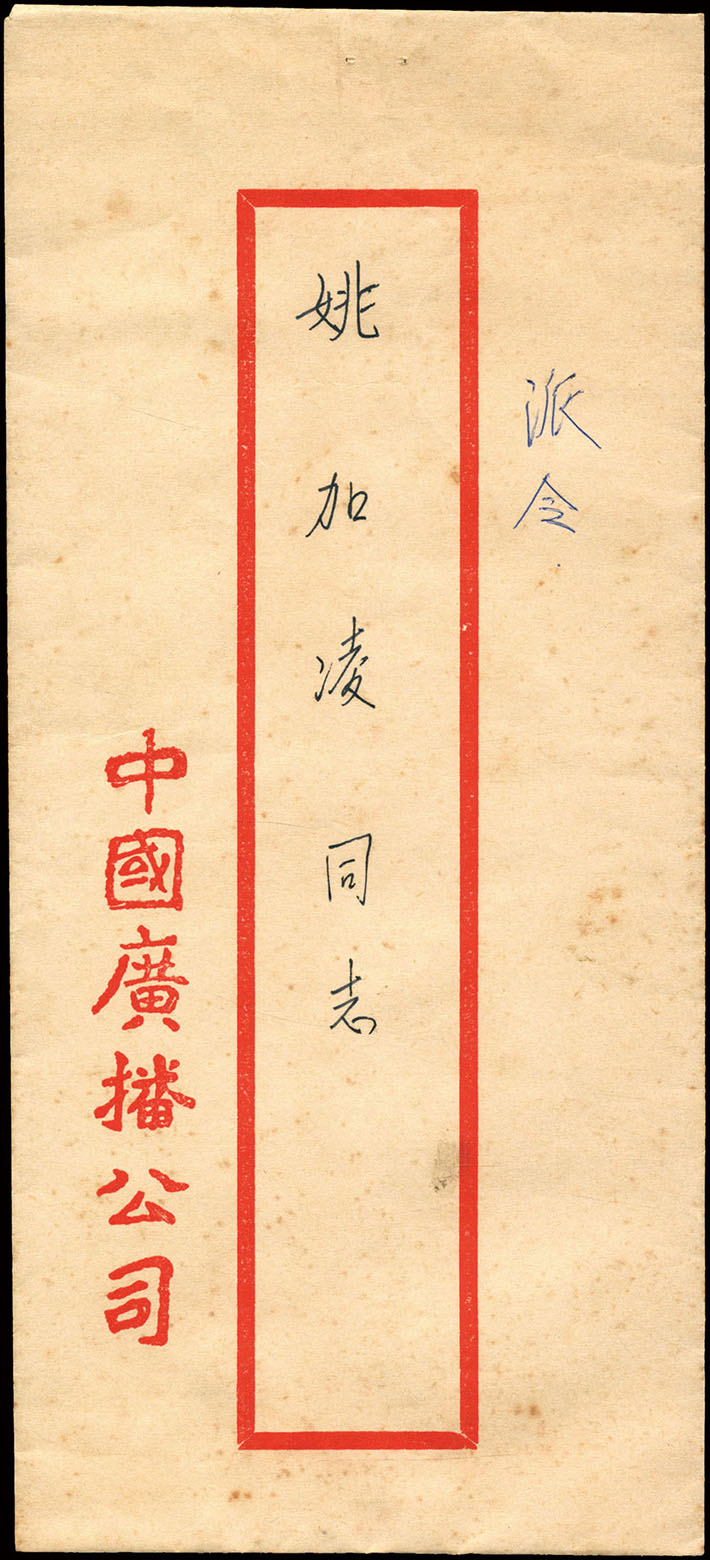 派令
姚加凌同志
中國廣播公司